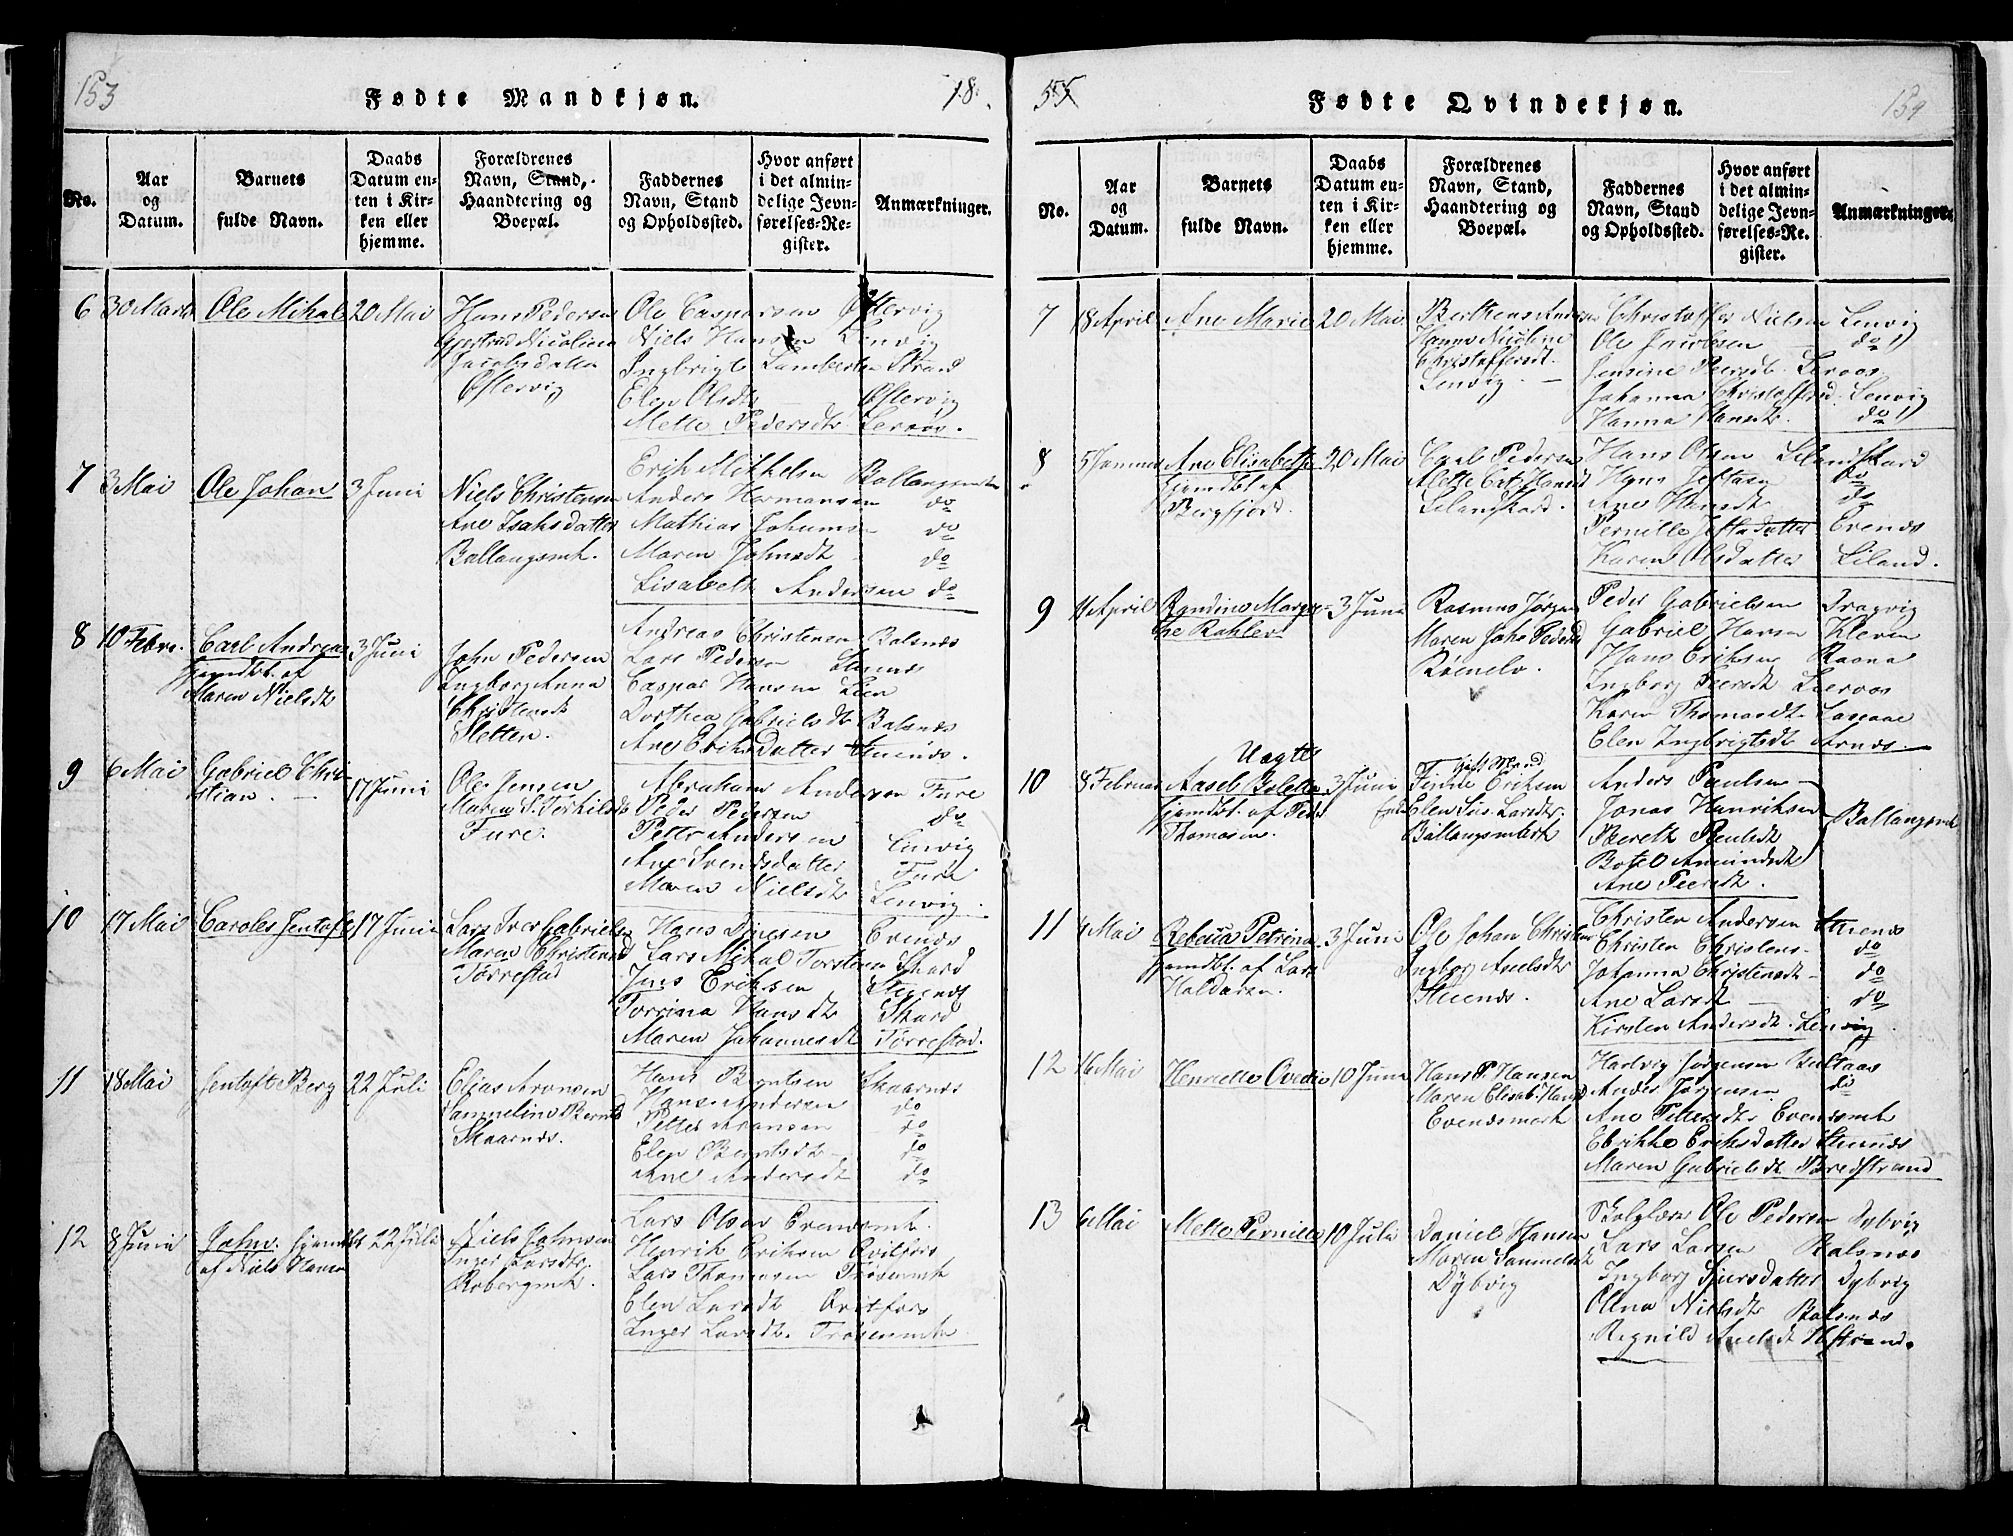 153
Fødte Mandkjøn.
18
No.
Aar
og
Datum.
Barnets
fulde Navn.
Daabs
Datum en-
ten i Kir-
ken eller
hjemme.
Forældrenes
Navn, Stand,
Haandtering og
Boepæl.
Faddernes
Navn, Stand
og Opholdssted.
Hvor anført
i det almin-
delige Jevn-
førelses-Re-
gister.
Anmærkninger.
6 30 Marts Ole Mihal 20 Mai
Hans Pedersen
Nicolina
Jacobsdatter
Østervig
Ole Caspersen Østervig
Niels Hansen Lenvig
Ingbrigt Lambertsen Strand
Elen Olsdt Østervig
Mette Pedersdt Lervos.
7 3 Mai Ole Johan 3 Juni
Niels Christensen
Ane Isaksdatter
Ballangsmk.
Erik Mikkelsen Ballangsmk
Anders Hermansen do
Mathias Johans do
Maren Johnsdt do
Lisabeth Andersen do
8 10 Febr. Carl Andreas 3 Juni
hjemdbt. af
Maren Nielsdt
John Pedersen
Ingborg Anna
Christensdt
Sletten.
Andreas Christensen Balsnes
Lars Pedersen Stunes
Caspar Hansen Lien
Dorthea Gabrielsdt Balsnes
Ane Eriksdatter Stunes.
9 6 Mai Gabriel Chri-
stian. 17 Juni
Ole Jensen
Maren S. Terkildsdt
Fure.
Abraham Andersen Fure
Peder Pedersen do
Petter Andersen Lenvig
Ane Svendsdatter Fure
Maren Nielsdt Lenvig.
10 17 Mai Caroles Jentoft 17 Juni
Lars Iver Gabrielsen
Maren Christensd
Torrestad
Hans Dinesen Evenes
Lars Mihal Torstensen Skard
Jens Eriksen Stunes
Torrina Hansdt Skard
Maren Johannesdt Torrestad.
11 18 Mai Jentoft Berg 22 Juli
Elias Aronsen
Sammeline Berntsd
Skaarnes.
Hans Berntsen Skaarnes
Hans Andersen do
Petter Aronsen do
Elen Berntsdt do
Ane Andersdt do
12 8 Juni John. hjemdbt 22 Juli
af Niels Hansen
Niels Johnsen
Inger Larsdtr.
Robergmk.
Lars Olsen Evenesmk.
Henrik Eriksen Qvitfors
Lars Thomesen Trøsenmk
Elen Larsdt Qvitfors
Inger Larsdt. Trøsenmk
55
Fødte Qvindekjøn.
154
No.
Aar
og
Datum.
Barnets
fulde Navn.
Daabs
Datum en-
ten i Kir-
ken eller
hjemme.
Forældrenes
Navn, Stand,
Haandtering og
Boepæl.
Faddernes
Navn, Stand
og Opholdssted.
Hvor anført
i det almin-
delige Jevn-
førelses-Re-
gister.
Anmærkninger.
7 18 April Ane Marie 20 Mai
Hanna Nicoline
Christoffersdt.
Lenvig.
Christoffer Nielsen Lenvig
Ole Jacobsen do
Jensine Peersdt. Lervos
Johanna Christoffersd Lenvig
Hanna Hansdt. do
8 Ane Elisabeth 20 Mai
hjemdbt. af
Bergfjord.
Carl Pedersen
Lilandskard.
Hans Olsen Lilandskard
Hans Jeftasen do
Ane Hansdt do
Pernille Jeftadatter Evenes
Karen Olsdatter Liland.
9 11 April 3 Juni
Rasmus Jørgen
Maren Johs Pedersd
Gabrielsen
Gabriel Hansen
Hans Eriksen Raana
Ingborg Peersdt Lervos
Karen Thomasdt
Elen Ingbrigtsdt Arnes.
10 Uægte
8 Februar Aasel Bolette 3 Juni
hjemdbt. af Peder
Thomasen.
gift Mand
Finne Eriksen
Enke Elen Sus. Larsdtr.
Ballangsmark
Anders Paulsen
Jonas Henriksen Ballangsmk
Bereth Paulsdt
Botel Amundsdt
Ane Peersdt.
11 4 Mai Rebecca Petrina 3 Juni
hjemdbt. af Lars
Haldorsen.
Ole Johan Christens
Ingborg Axelsdt
Stunes.
Christen Andersen Stunes
Christen Christens. do
Johanna Christensdt do
Ane Larsdt do
Kirsten Andersdt. Lenvig
12 16 Mai Henriette Ovedie 10 Juni
Hans P. Hansen
Maren Elisab. Hansd
Evenesmark
Hartvig Jørgensen Bultaas
Anders Jørgensen do
Ane Pettersdt Evenesmk
Ebrikke Eriksdatter Stunes
Maren Gabrielsdt Bredstrand
13 6 Mai Mette Pernille 10 Juli
Daniel Hansen
Maren Sammelsd
Dybvig
Skolelærer Ole Pedersen Dybvig
Lars Larsen Balsnes
Ingborg Siursdatter Dybvig
Olina Nielsdt Balsnes
Regnild Axelsdt